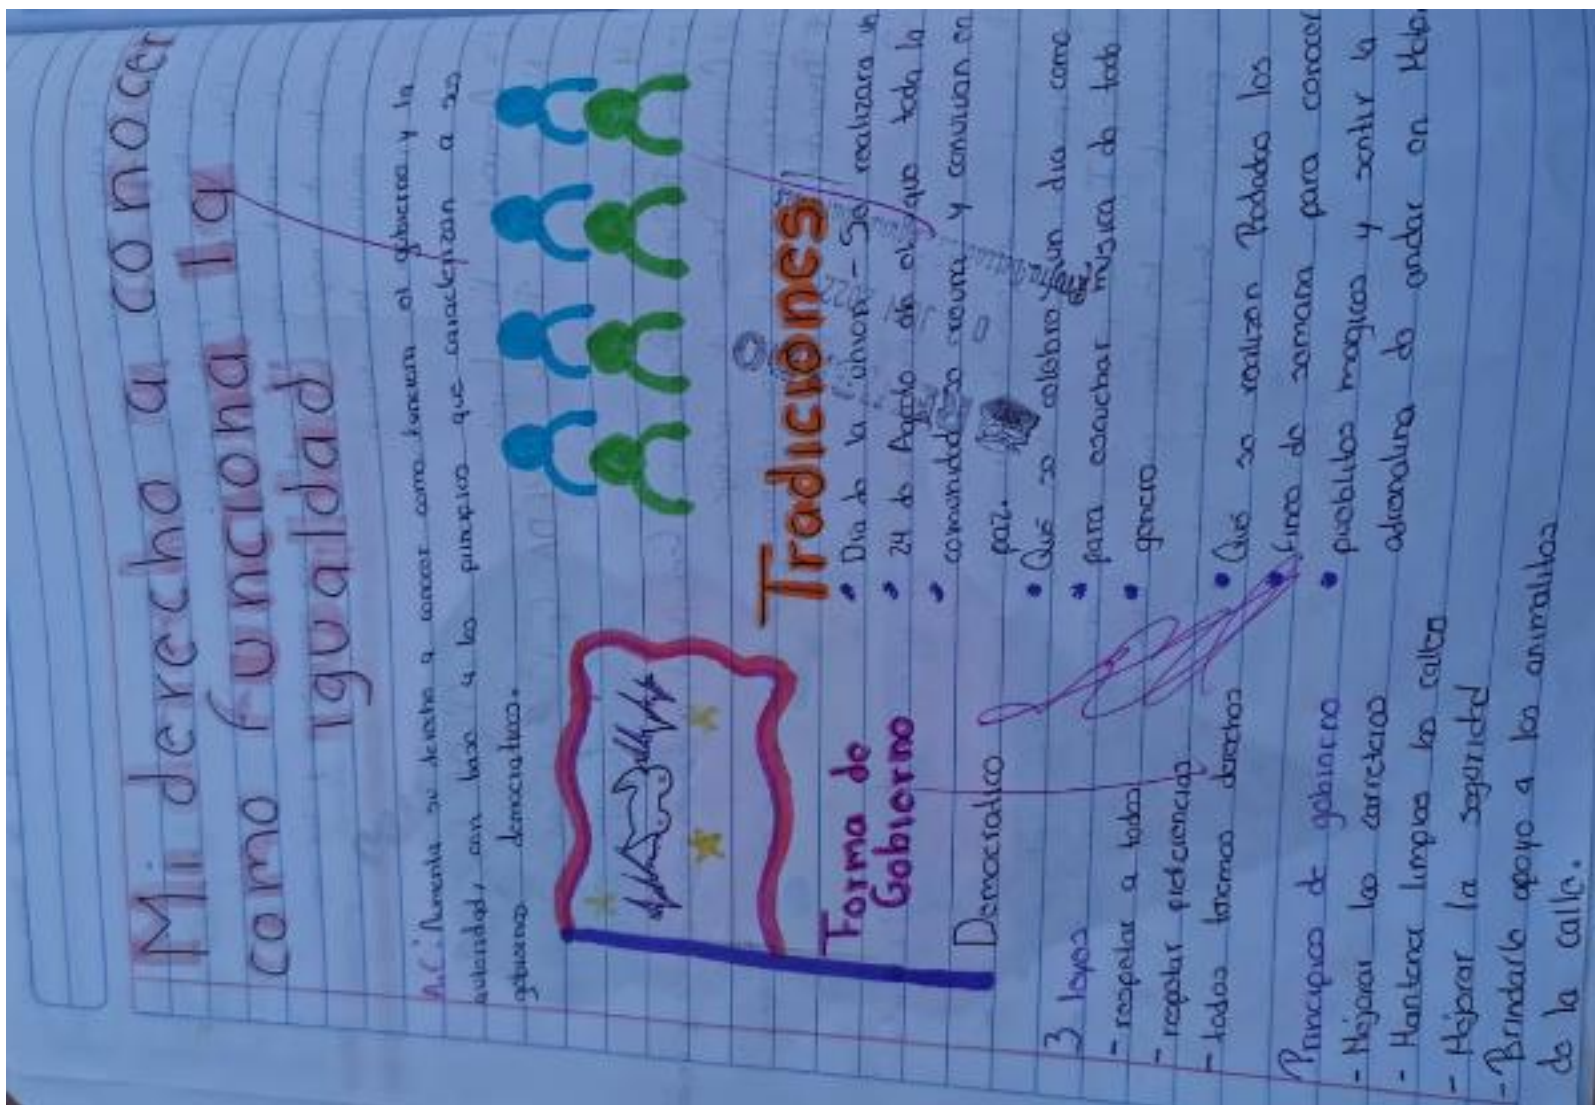 Mi derecho a conocer
como funciona la
igualdad
A.C: Aumenta su derecho a conocer como funciona el gobierno y la
autoridad, con base a los principios que caracterizan a sus
gobiernos democraticos.
Forma de
Gobierno
Democratico
3 leyes
- respetar a todos
- respetar preferencias
- todos tenemos derechos
Principios de gobierno
- Mejorar las carreteras
- Mantener limpias las calles
- Mejorar la seguridad
- Brindarle apoyo a los animalitos
de la calle.
Tradiciones
Dia de la union - Se realizara un
24 de Agosto en el que toda la
comunidad se reuna y convivan en
paz.
Qué se celebre un dia como
para escuchar musica de todo
genero
Qué se realizen Rodadas los
fines de semana para conocer
pueblitos magicos y sentir la
adrenalina de andar en Moto